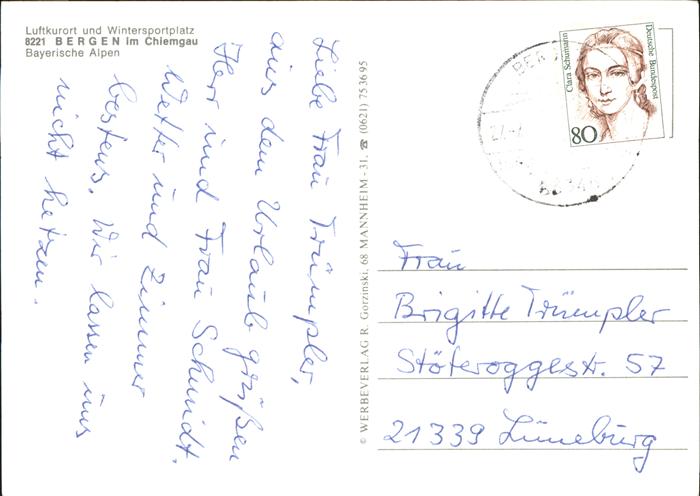 Luftkurort und Wintersportplatz
8221 BERGEN im Chiemgau
Bayerische Alpen
Liebe Frau Trümpler,
aus dem Urlaub grüßen
Herr und Frau Schmidt.
Wetter und Zimmer
bestens. Wir lassen uns
nicht hetzen.
© WERBEVERLAG R. Gorzinski, 68 MANNHEIM - 31, ☎ (0621) 75 36 95
Clara Schumann
Deutsche Bundespost
80
BER
Frau
Brigitte Trümpler
Stöteroggestr. 57
21339 Lüneburg